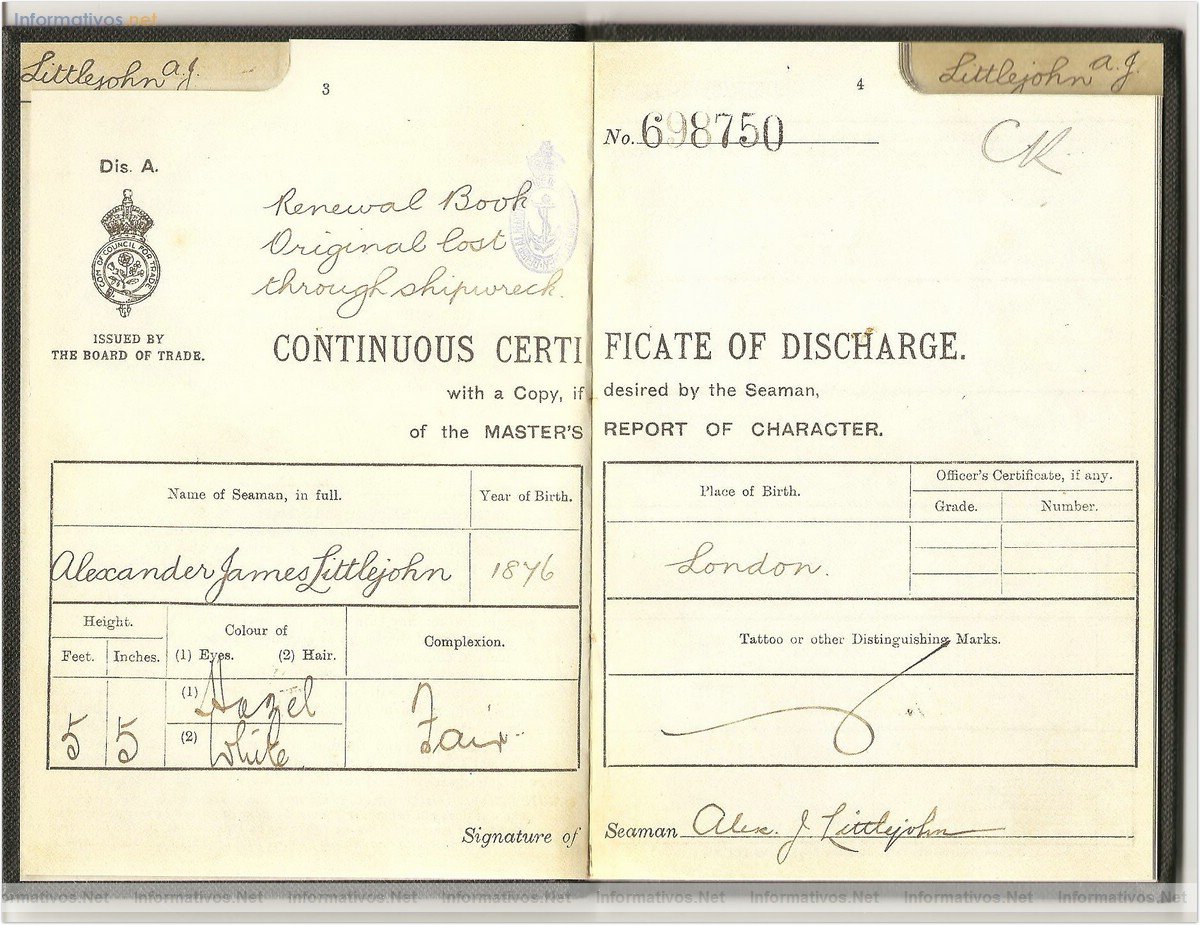 Informativos.net
Littlejohn A. J.
3
Dis. A.
COM OF COUNCIL FOR TRADE
ISSUED BY
THE BOARD OF TRADE.
Renewal Book
Original lost
through shipwreck.
4
Littlejohn A. J.
No. 698750
CR
CONTINUOUS CERTIFICATE OF DISCHARGE.
with a Copy, if desired by the Seaman,
of the MASTER'S REPORT OF CHARACTER.
Name of Seaman, in full. Year of Birth.
Alexander James Littlejohn 1876
Height. Colour of Complexion.
Feet. Inches. (1) Eyes. (2) Hair.
5 5 (1) Hazel Fair
(2) White
Place of Birth. Officer's Certificate, if any.
Grade. Number.
London.
Tattoo or other Distinguishing Marks.
Signature of Seaman Alex. J. Littlejohn
Informativos.Net Informativos.Net Informativos.Net Informativos.Net Informativos.Net Informativos.Net Informativos.Net Informativos.Net